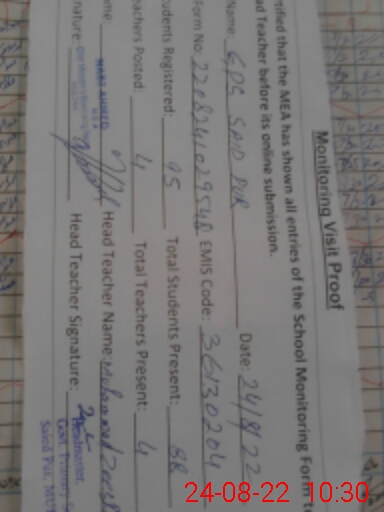 Monitoring Visit Proof
tified that the MEA has shown all entries of the School Monitoring Form t
ad Teacher before its online submission.
Name: GPS SAID PUR Date: 24/8/22
Form No: EMIS Code: 36130204
udents Registered: 95 Total Students Present: 88
achers Posted: 4 Total Teachers Present: 4
me: Head Teacher Name Muhammad
nature: Head Teacher Signature:
Headmaster,
Govt. Primary S
Saied Pur,
24-08-22 10:30